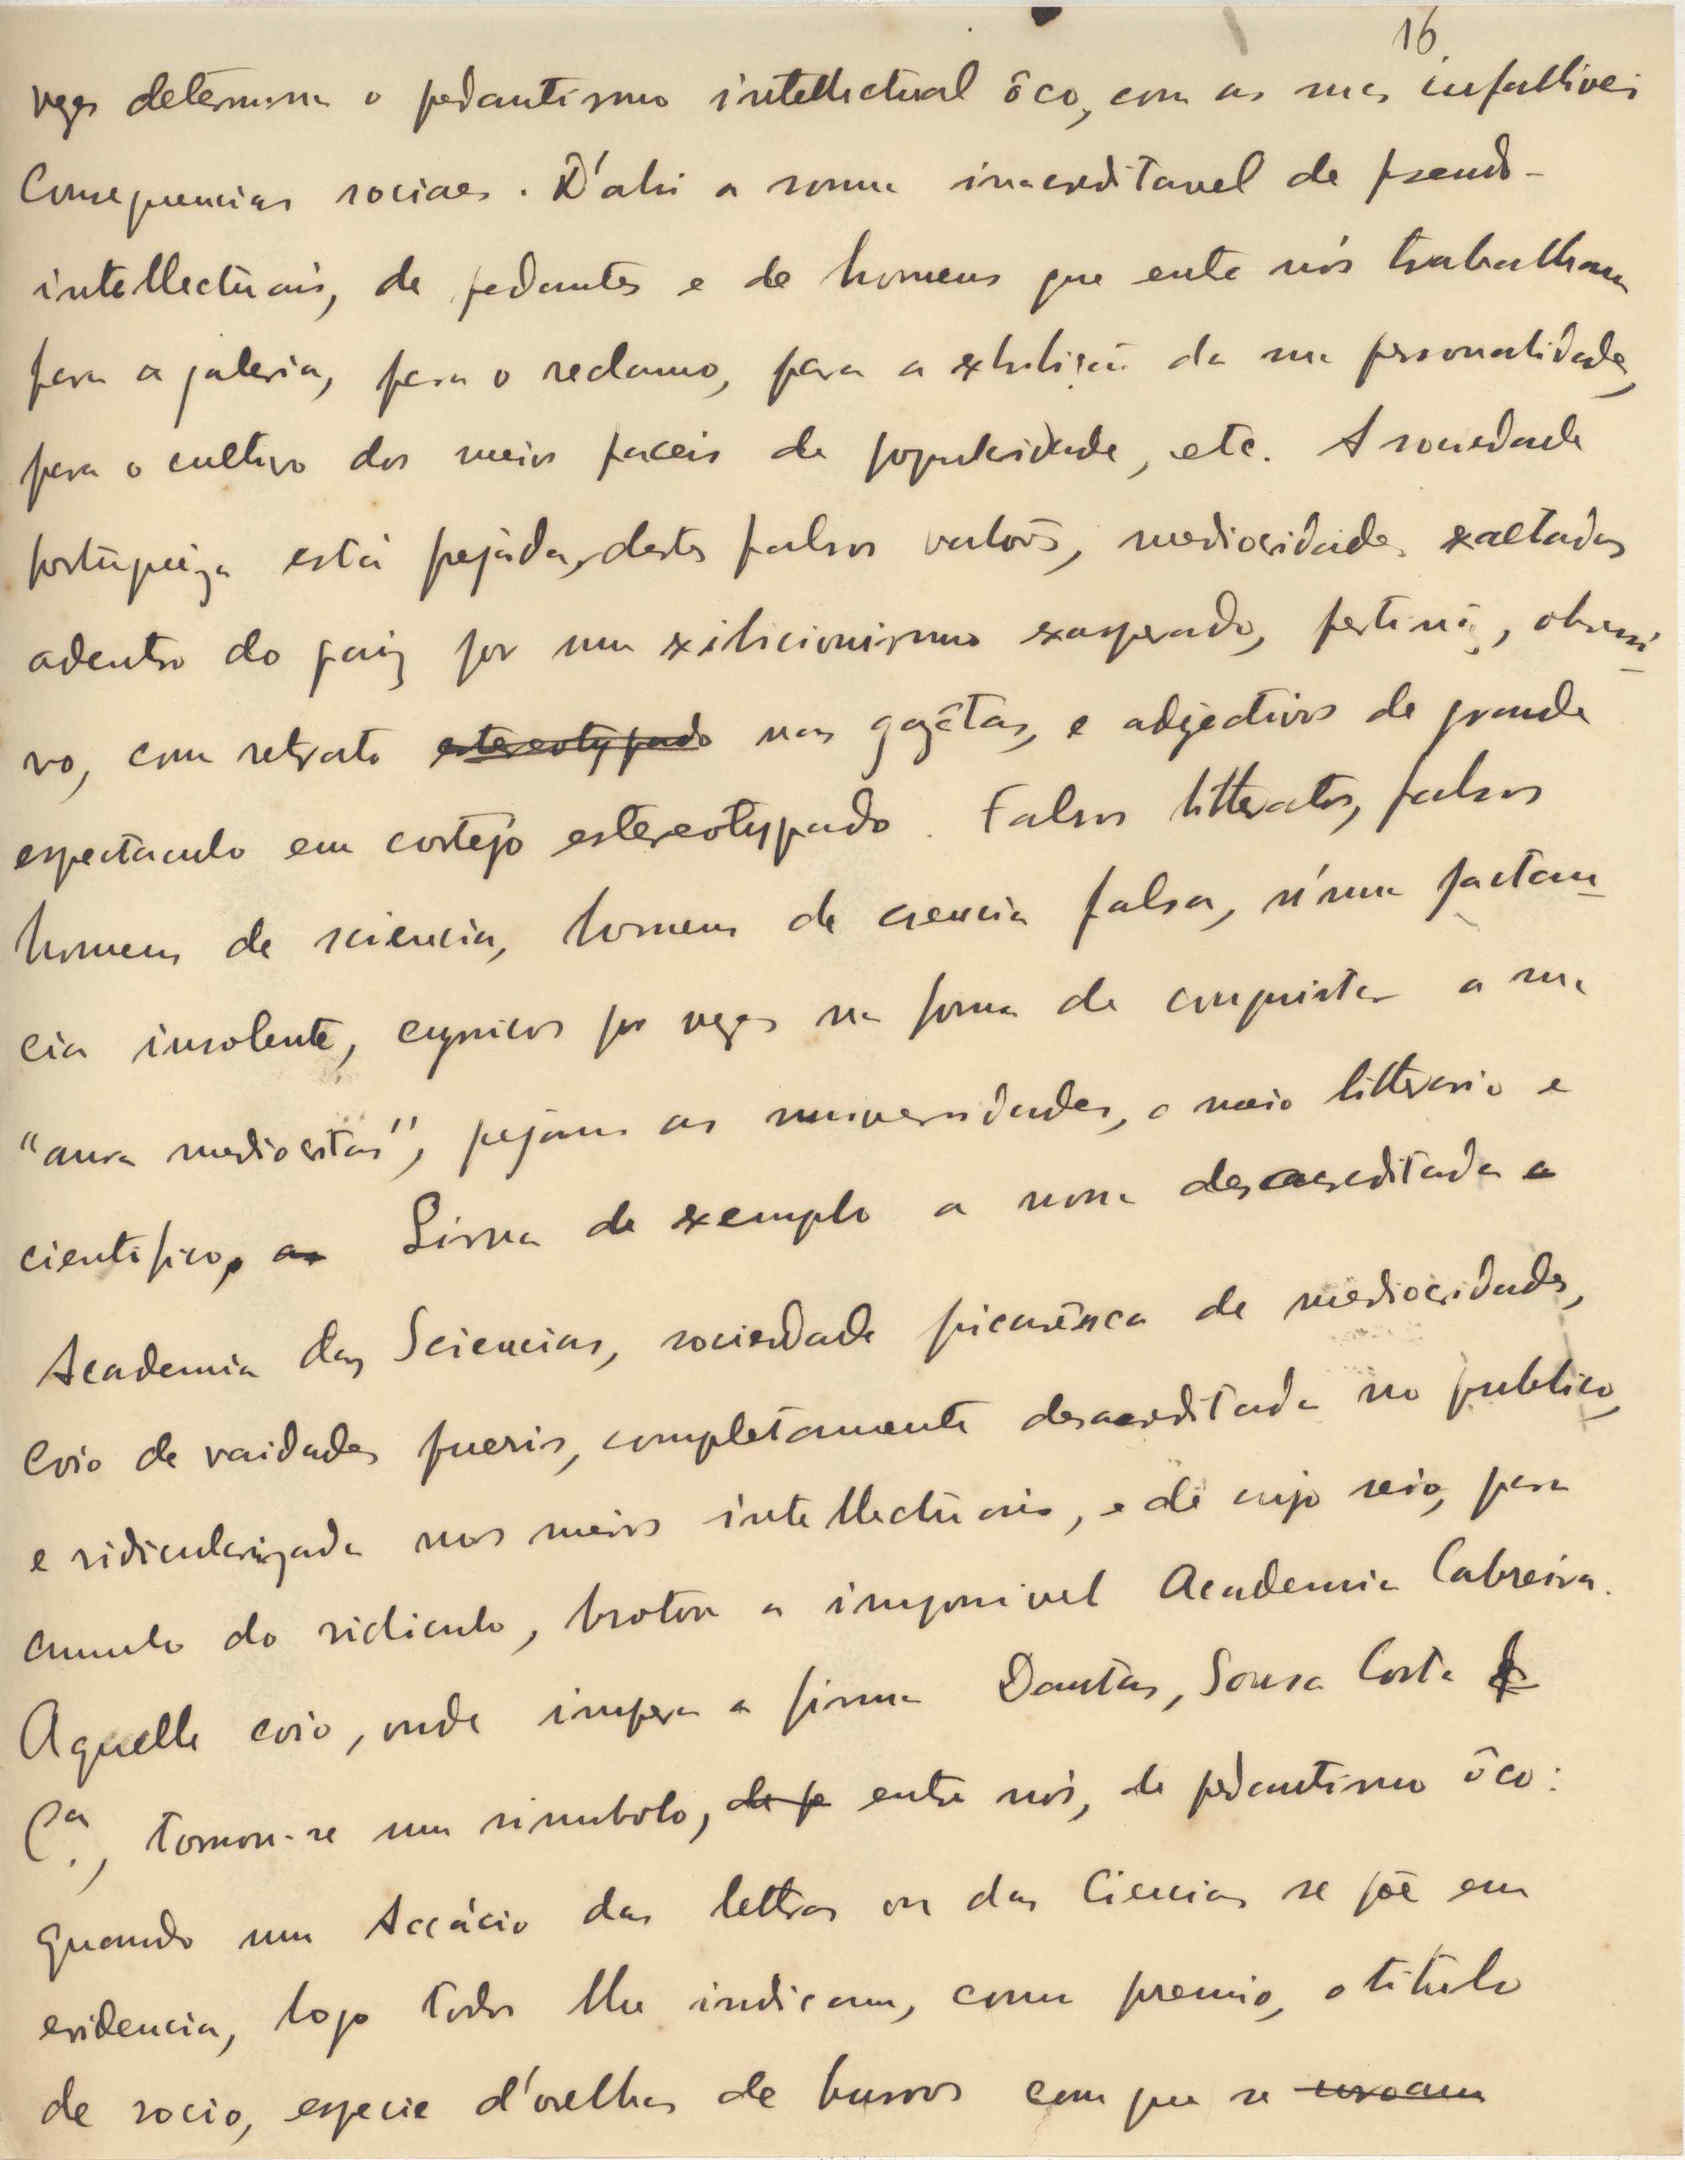 16
vezes determina o pedantismo intellectual ôco, com as suas infalliveis
consequencias sociaes. D'ahi a somma inacreditavel de pseudo-
intellectuais, de pedantes e de homens que entre nós trabalham
para a galeria, para o reclamo, para a exhibição da sua personalidade,
para o cultivo dos meios faceis de popularidade, etc. A sociedade
portuguêza está pejada, destes falsos valores, mediocridades exaltadas
adentro do paiz por um exibicionismo exasperado, pertináz, obsessi-
vo, com retrato estereotypado nas gazêtas, e adjectivos de grande
espectaculo em cortejo estereotypado. Falsos litteratos, falsos
homens de sciencia, homens de ciencia falsa, n'uma jactan-
cia insolente, cynicos por vezes na forma de conquistar a sua
"aurea mediocritas", pejam as universidades, o meio litterario e
cientifico, as Sirva de exemplo a nossa desacreditada a
Academia das Sciencias, sociedade picarêsca de mediocridades,
coio de vaidades pueris, completamente desacreditada no publico,
e ridicularizada nos meios intellectuais, e de cujo seio, para
cumulo do ridiculo, brotou a impossivel Academia Cabreira.
Aquelle coio, onde impera a firma Dantas, Sousa Costa &
C.ª, tornou-se um simbolo, de p entre nós, de pedantismo ôco:
quando um Accácio das lettras ou das Ciencias se põe em
evidencia, logo todos lhe indicam, como premio, o titulo
de socio, especie d'orelhas de burros com que se